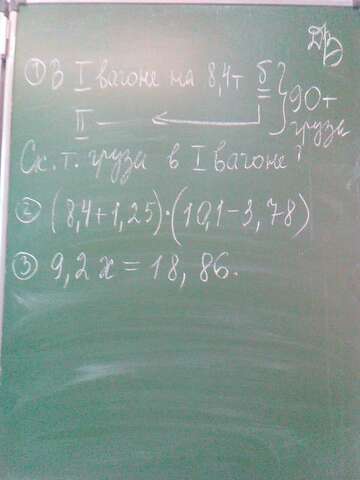 ДР
① В I вагоне на 8,4т б } 90т
II груза
Ск. т. груза в I вагоне?
② (8,4+1,25)·(10,1-3,78)
③ 9,2x = 18,86.